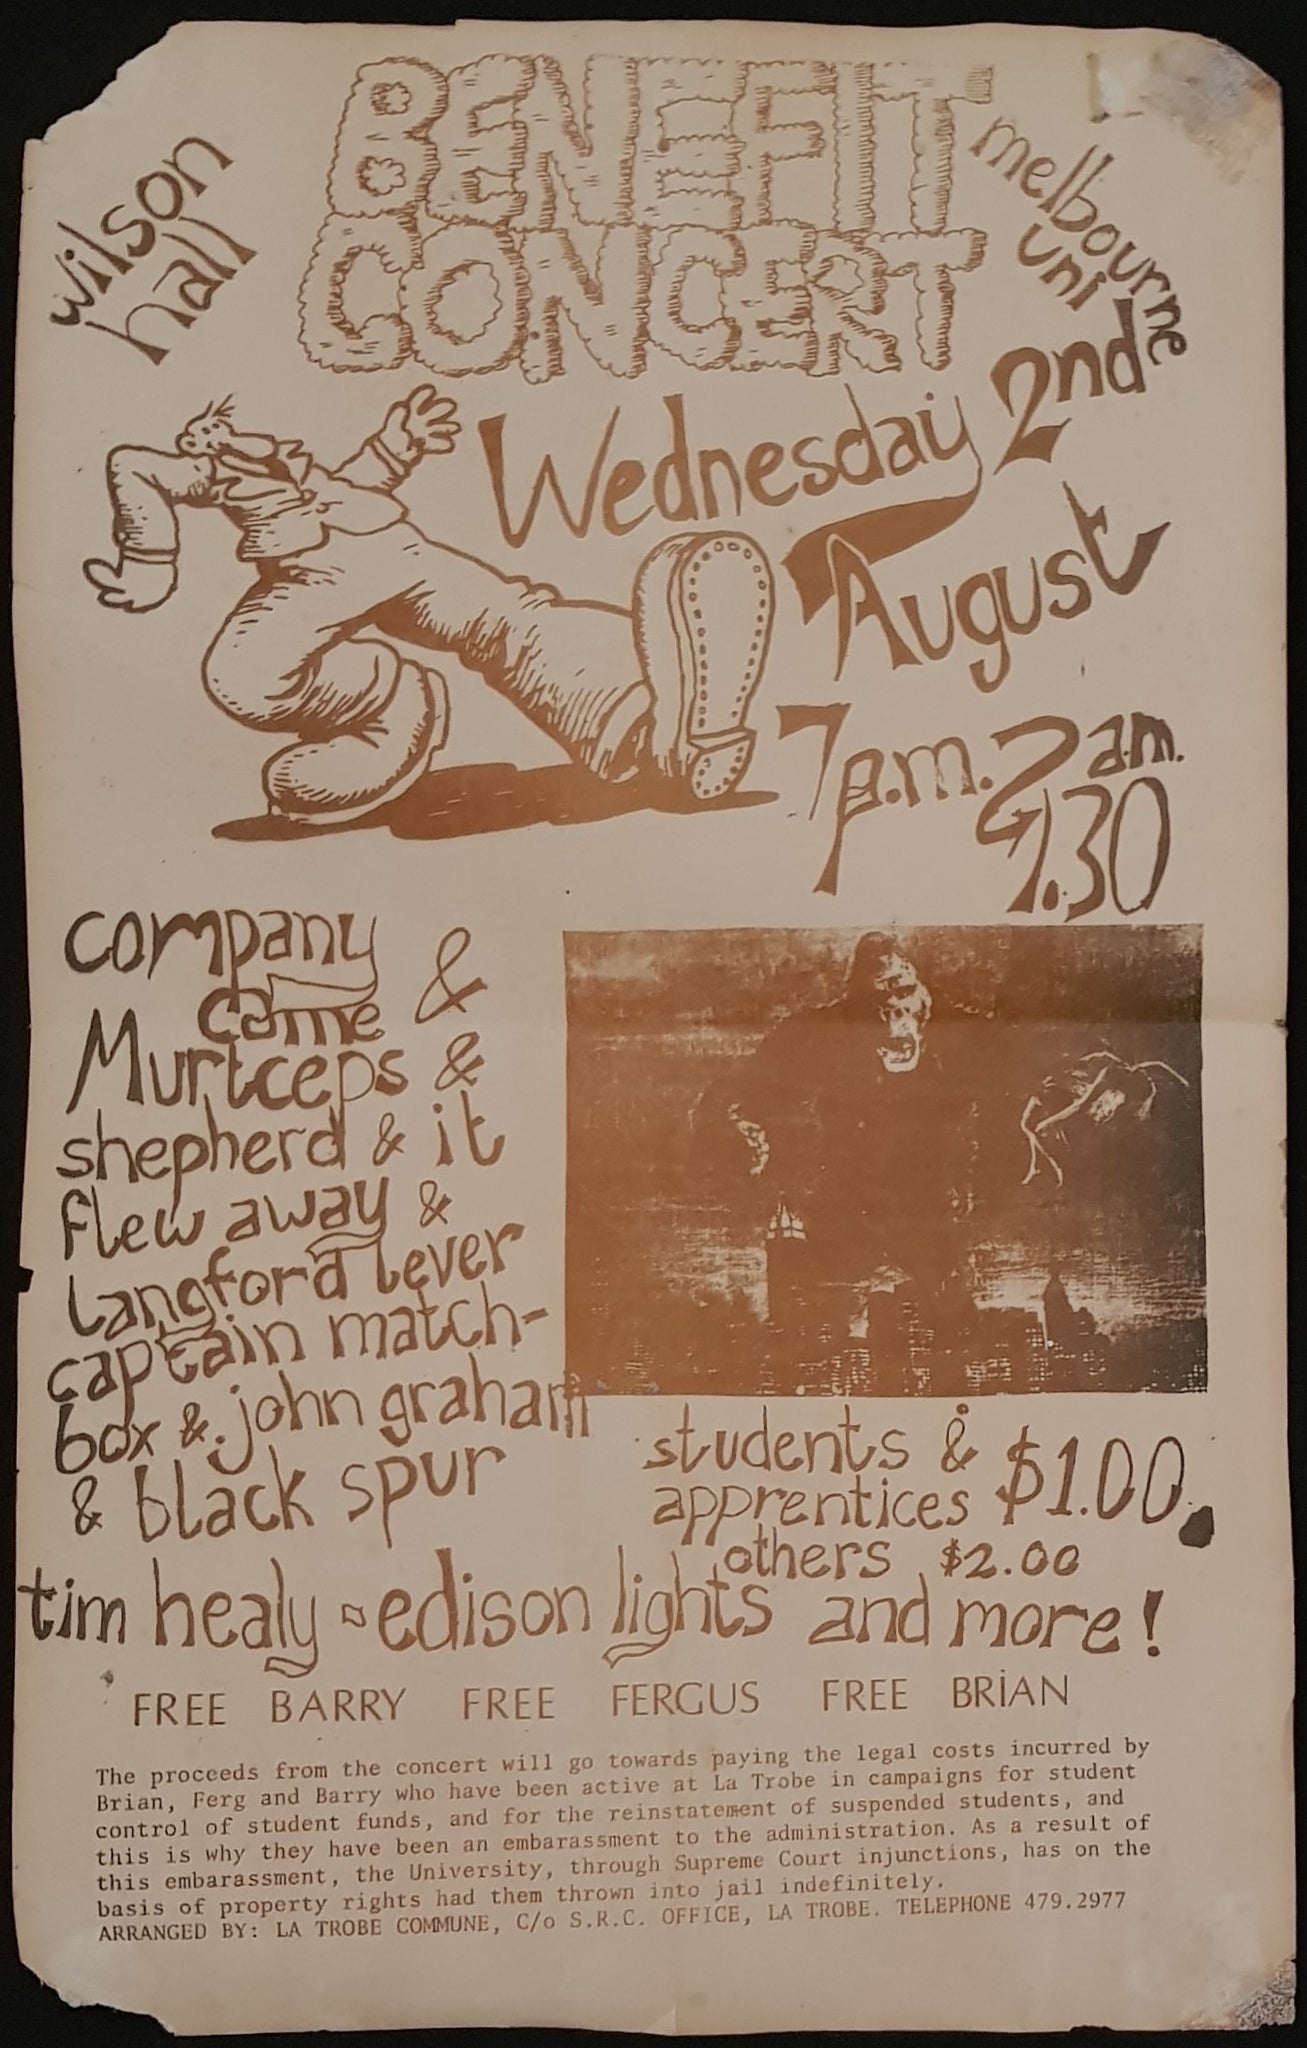 BENEFIT
CONCERT
wilson
hall
melbourne
uni
Wednesday 2nd
August
7p.m. 2 am.
1.30
company
came &
Murtceps &
shepherd & it
flew away &
langford lever
captain match-
box & john graham
& black spur
students &
apprentices $1.00.
others $2.00
tim healy - edison lights and more!
FREE BARRY FREE FERGUS FREE BRIAN
The proceeds from the concert will go towards paying the legal costs incurred by
Brian, Ferg and Barry who have been active at La Trobe in campaigns for student
control of student funds, and for the reinstatement of suspended students, and
this is why they have been an embarassment to the administration. As a result of
this embarassment, the University, through Supreme Court injunctions, has on the
basis of property rights had them thrown into jail indefinitely.
ARRANGED BY: LA TROBE COMMUNE, C/o S.R.C. OFFICE, LA TROBE. TELEPHONE 479.2977